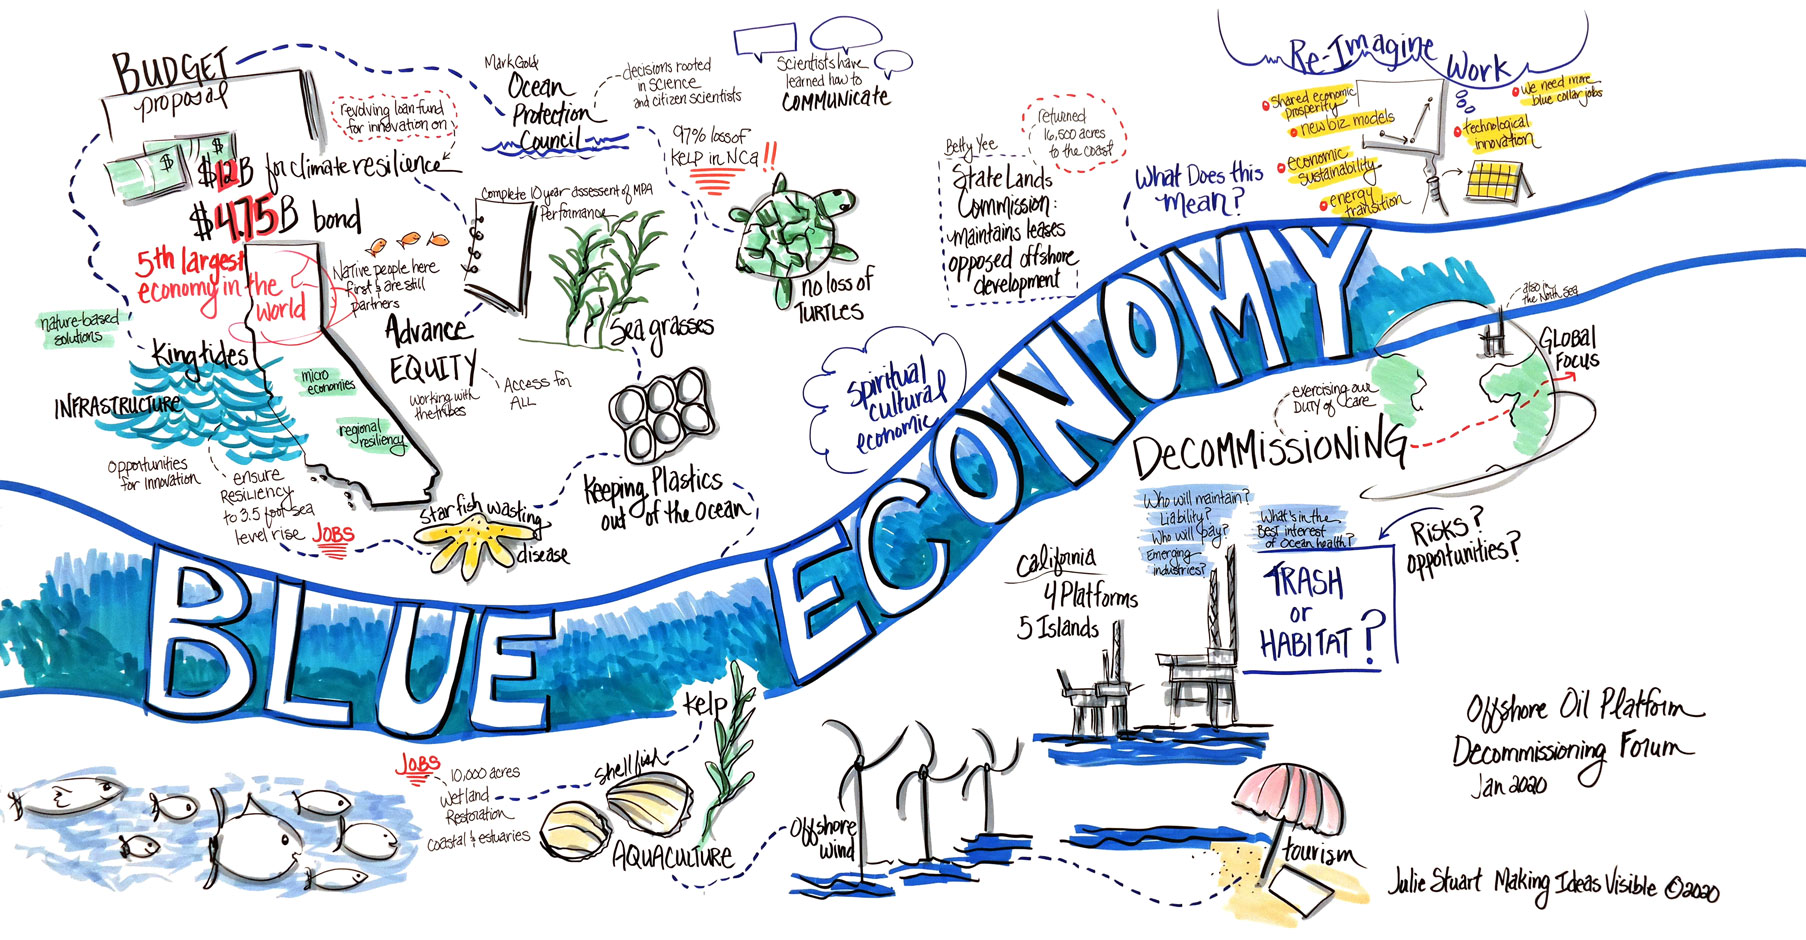 BUDGET
proposal
revolving loan fund
for innovation on
$12B for climate resilience
$4.75B bond
5th largest
economy in the
world
Native people here
first & are still
partners
nature-based
solutions
King tides
INFRASTRUCTURE
micro
economies
regional
resiliency
opportunities
for innovation
ensure
Resiliency
to 3.5 foot sea
level rise
JOBS
Mark Gold
Ocean
Protection
Council
decisions rooted
in Science
and citizen scientists
Scientists have
learned how to
COMMUNICATE
97% loss of
Kelp in NCa!!
Complete 10 year assessment of MPA
Performance
Advance
EQUITY
working with
the tribes
Access for
ALL
Sea grasses
no loss of
TURTLES
Keeping Plastics
out of the Ocean
Starfish wasting
disease
Betty Yee
State Lands
Commission:
maintains leases
opposed offshore
development
returned
16,500 acres
to the coast
spiritual
cultural
economic
What Does this
mean?
Re-Imagine
Work
Shared economic
prosperity
new biz models
economic
sustainability
energy
transition
we need more
blue collar jobs
technological
innovation
BLUE ECONOMY
also in
the North Sea
GLOBAL
FOCUS
exercising our
DUTY of care
DeCOMMISSIONING
Who will maintain?
Liability?
Who will pay?
Emerging
industries?
What's in the
Best interest
of Ocean health?
Risks?
opportunities?
TRASH
or
HABITAT?
California
4 Platforms
5 Islands
Kelp
Shellfish
JOBS
10,000 acres
Wetland
Restoration
coastal & estuaries
AQUACULTURE
Offshore
Wind
tourism
Offshore Oil Platform
Decommissioning Forum
Jan 2020
Julie Stuart Making Ideas Visible ©2020